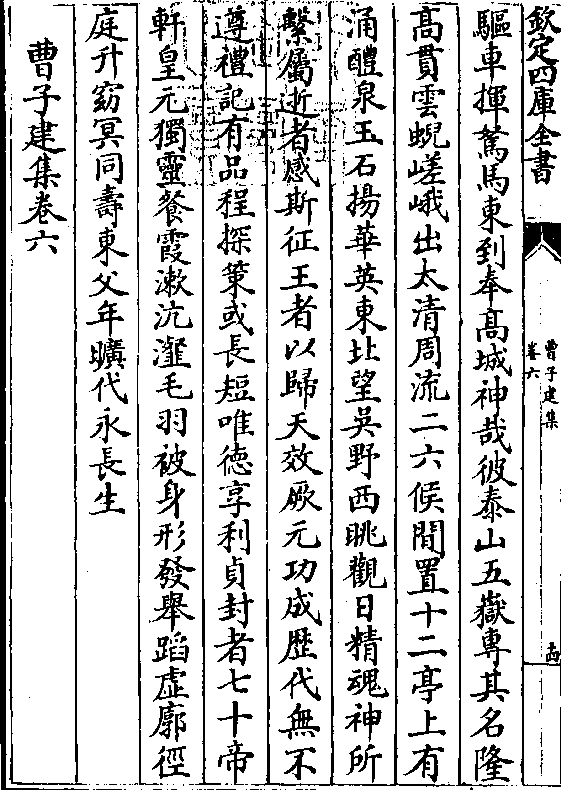 欽定四庫全書
曹子建集
卷六
驅車揮駑馬東到奉髙城神哉彼泰山五嶽專其名隆
髙貫雲蜺嵯峨出太清周流二六候間置十二亭上有
涌醴泉玉石揚華英東北望吳野西眺觀日精魂神所
繫屬逝者感斯征王者以歸天效厥元功成歴代無不
遵禮記有品程探策或長短唯德享利貞封者七十帝
軒皇元獨靈餐霞漱沆瀣毛羽被身形發舉蹈虚廓徑
庭升窈冥同壽東父年曠代永長生
曹子建集卷六